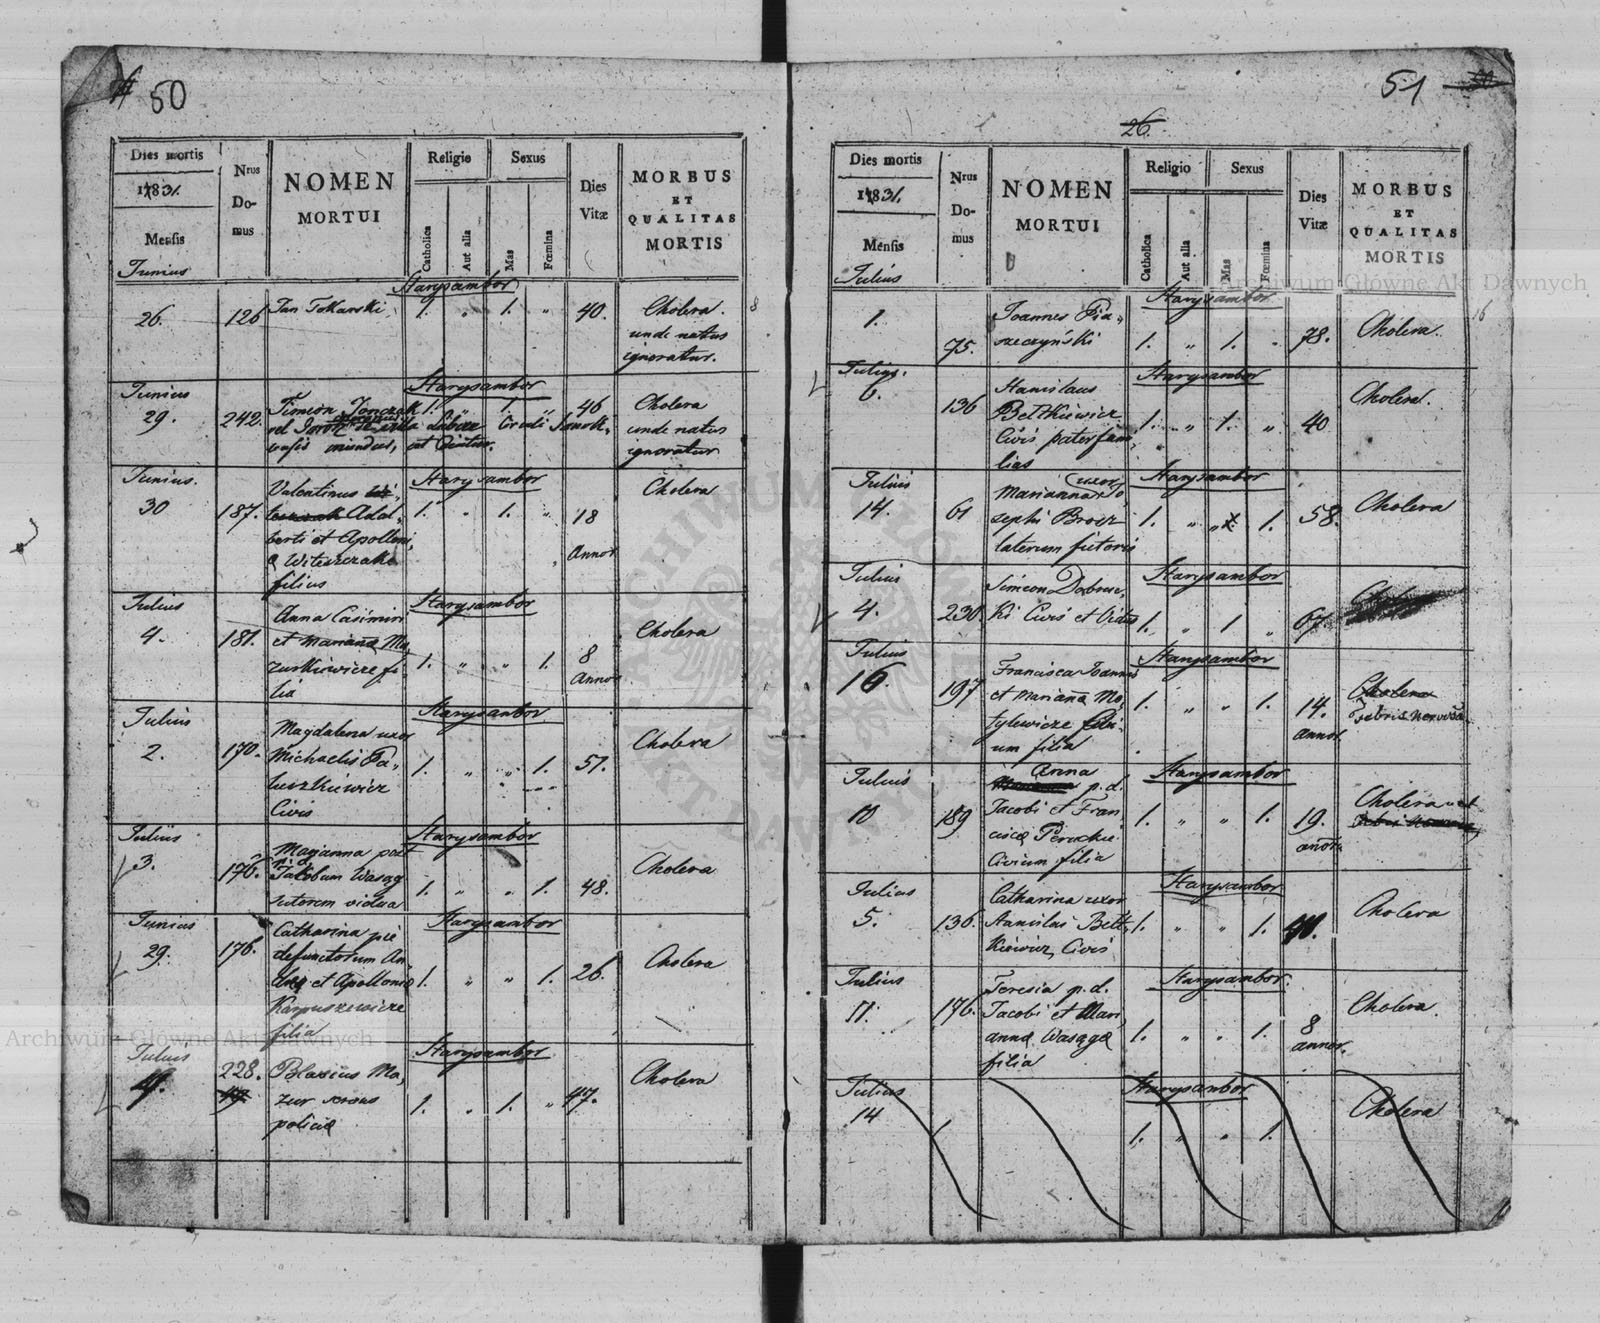 50
Dies mortis
1831.
Mensis
Nrus
Do-
mus
NOMEN
MORTUI
Religio
Catholica
Aut alia
Sexus
Mas
Fœmina
Dies
Vitæ
MORBUS
ET
QUALITAS
MORTIS
Junius
Starysambor
26. 126 Jan Tokarski 1. „ 1. „ 40. Cholera.
unde natus
ignoratur.
8
Junius Starysambor
29. 242. Simeon 1. „ 1. „ 46 Cholera
vel unde natus
ignoratur
Junius. Starysambor
30 187. Valentinus 1. „ 1. „ 18 Cholera
Adal-
berti et Apolloni-
æ Witeszczak Annor
filius
Julius Starysambor
4. 181. Anna Casimiri
et Mariana Ma- Cholera
zurkiewicze fi- 1. „ „ 1. 8
lia Annor
Julius Starysambor
2. 170. Magdalena uxor Cholera
Michaelis Pa- 1. „ „ 1. 51.
luszkiewicz
Civis
Julius Starysambor
3. 176. Marianna post Cholera
Jacobum Wasag 1. „ „ 1. 48.
sutorem vidua
Junius Starysambor
29. 176. Catharina pie
defunctorum An- Cholera
et Apolloniæ 1. „ „ 1. 26.
Karpuszewicze
filia
Julius Starysambor
4. 228. Blasius Ma- Cholera
zur 1. „ 1. „ 47.
policiæ
51
26.
Dies mortis
1831.
Mensis
Nrus
Do-
mus
NOMEN
MORTUI
Religio
Catholica
Aut alia
Sexus
Mas
Fœmina
Dies
Vitæ
MORBUS
ET
QUALITAS
MORTIS
Julius
Starysambor
1. 75. Joannes Pia- Cholera.
szczyński 1. „ 1. „ 78.
16
Julius. Starysambor
6. 136 Stanislaus Cholera.
Bettkiewicz 1. „ 1. „ 40
Civis paterfami-
lias
Julius Starysambor
14. 61 Marianna uxor Jo- Cholera
sephi Brosz 1. „ „ 1. 58.
laterum fictoris
Julius Starysambor
4. 230. Simeon Dobrowol-
ki Civis et 1. „ 1 „ 67
Julius Starysambor
16. 197 Francisca Joannis Cholera
et Mariana Mo- 1. „ „ 1. 14. Febris nervosa
tylewicze Civi- Annor.
um filia
Julius Starysambor
10 189 Anna p.d. Cholera
Jacobi et Fran- 1. „ „ 1. 19.
ciscæ annor
Civium filia
Julius Starysambor
5. 136. Catharina uxor Cholera
Stanislai Bett- 1. „ „ 1.
kiewicz, Civis
Julius Starysambor.
11. 176. Teresia p.d. Cholera.
Jacobi et Mari-
annæ Wasagæ 1. „ „ 1. 8
filia annor.
Julius Starysambor
14 1. „ „ 1. Cholera
Archiwum Główne Akt Dawnych
Archiwum Główne Akt Dawnych
ARCHIWUM GŁÓWNE AKT DAWNYCH